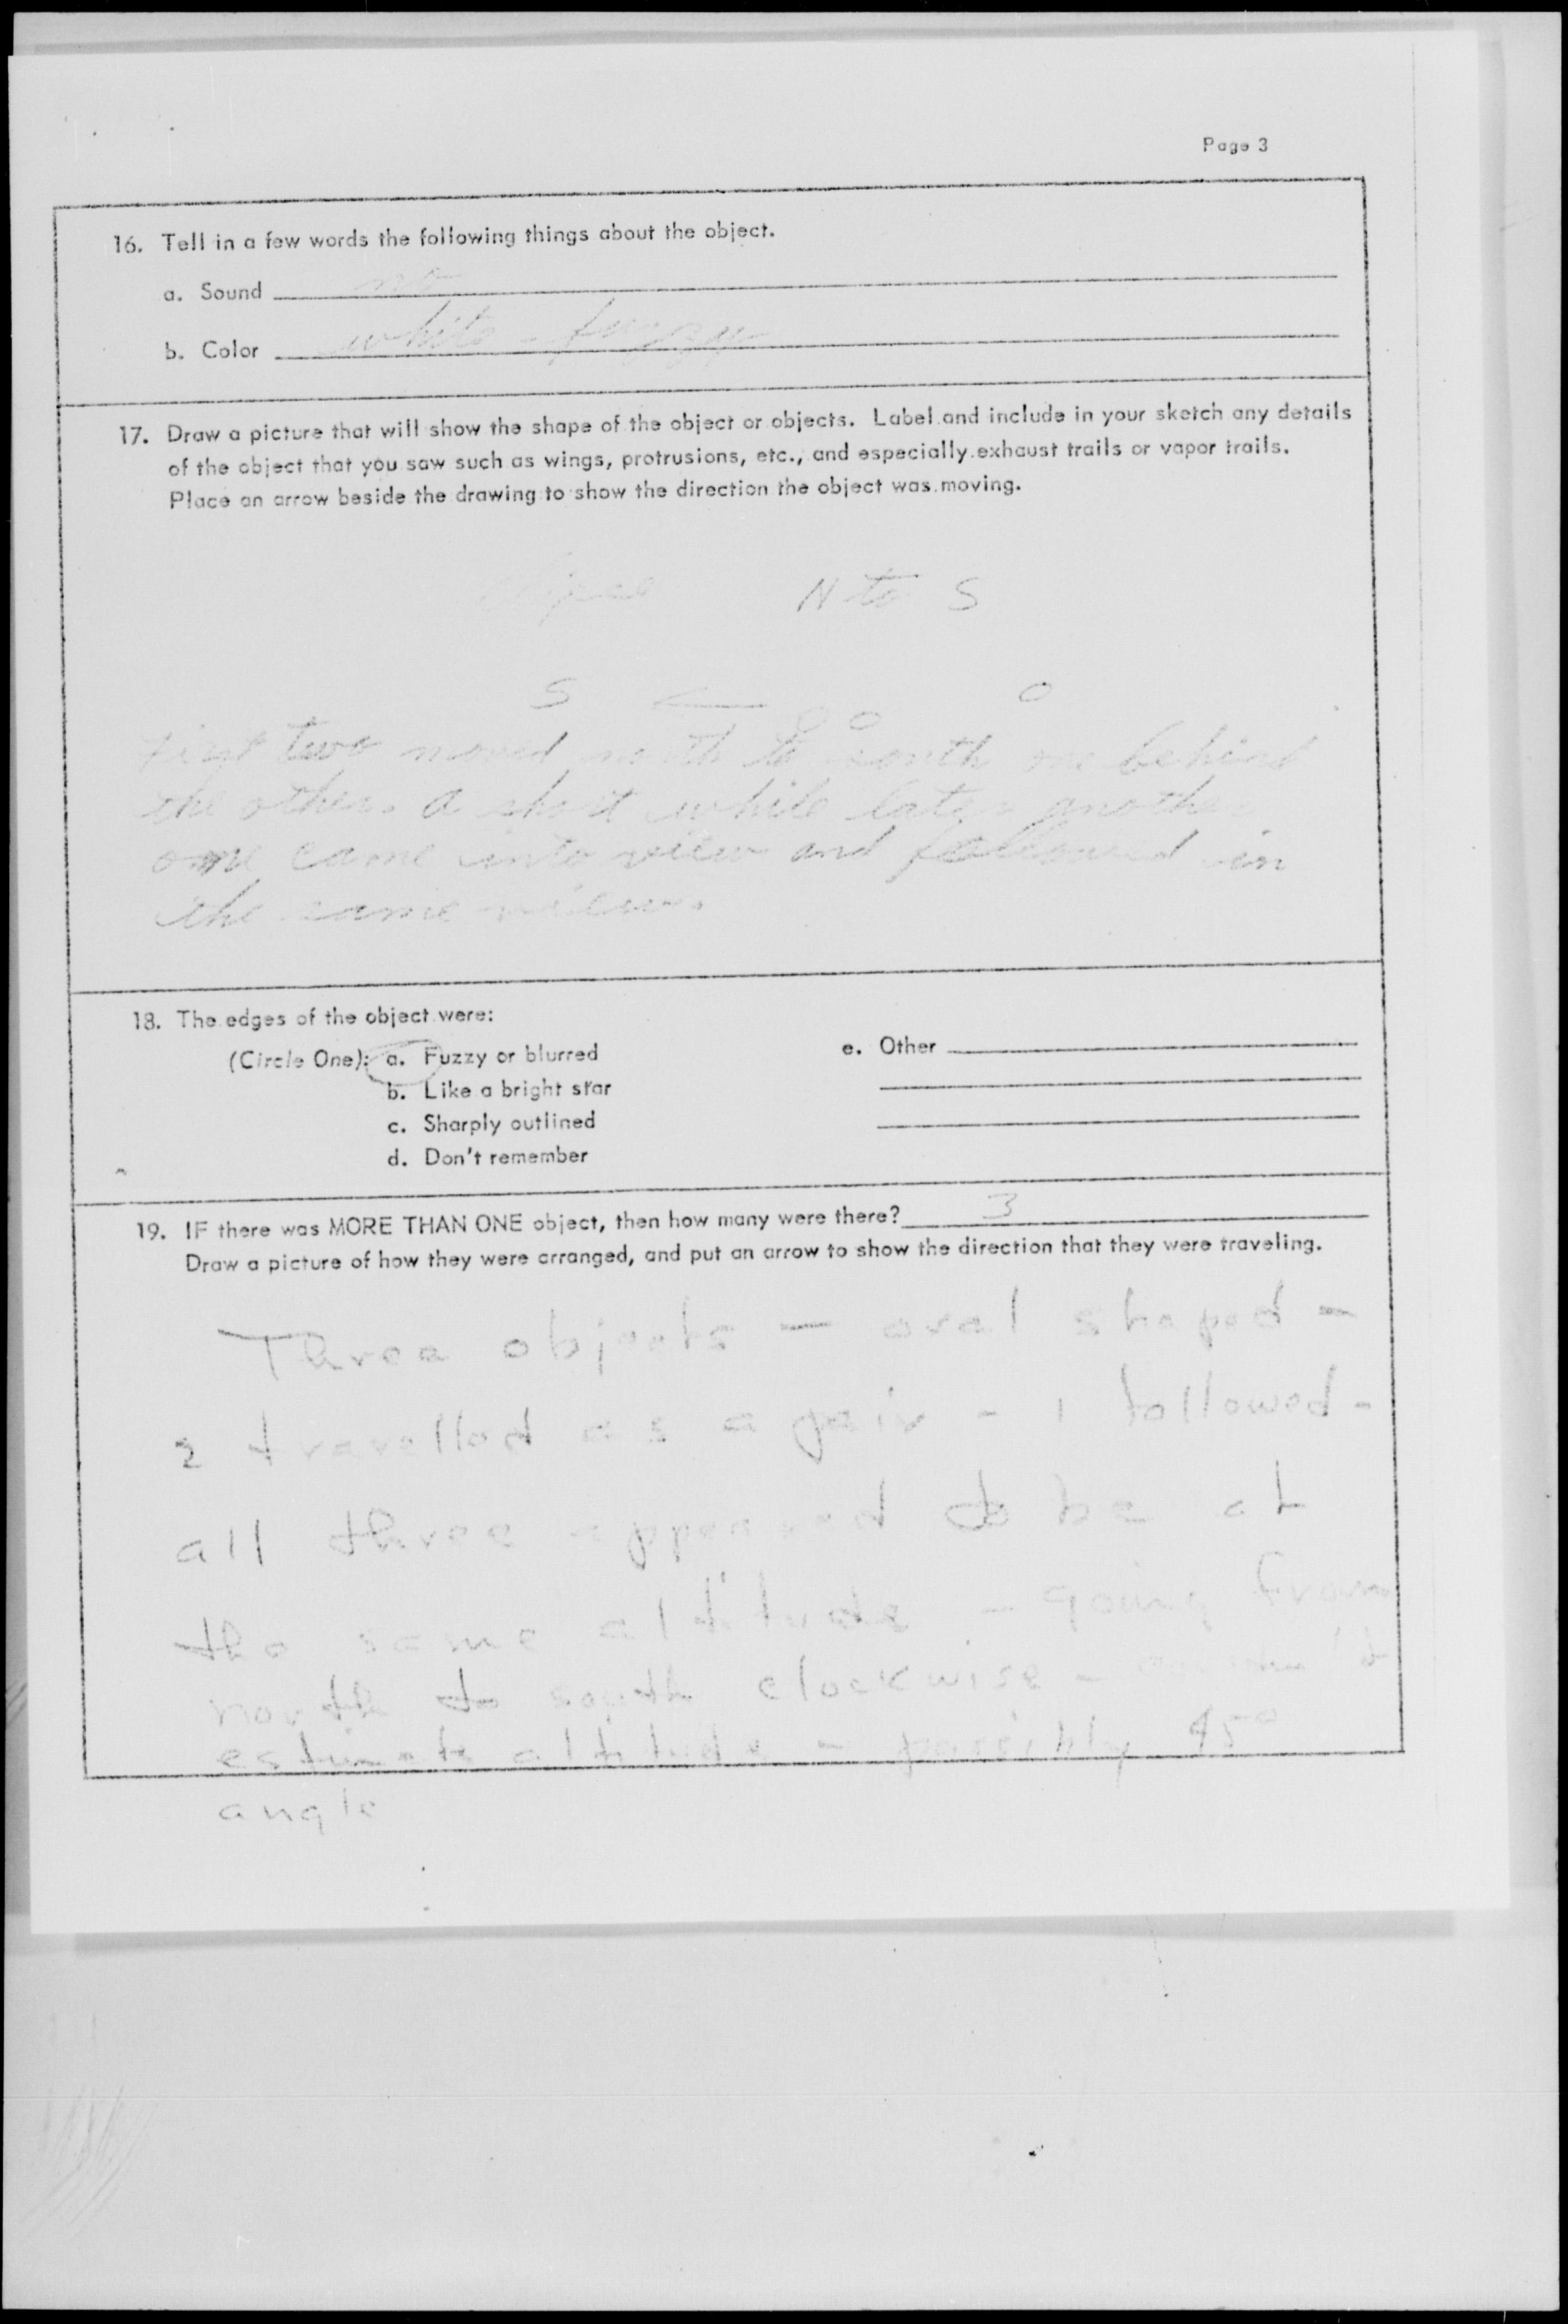 Page 3
16. Tell in a few words the following things about the object.
a. Sound no
b. Color white - fuzzy
17. Draw a picture that will show the shape of the object or objects. Label and include in your sketch any details
of the object that you saw such as wings, protrusions, etc., and especially exhaust trails or vapor trails.
Place an arrow beside the drawing to show the direction the object was moving.
N to S
S
First two moved north to south one behind
the other. A short while later another
one came into view and followed in
the same view.
18. The edges of the object were:
(Circle One): a. Fuzzy or blurred
e. Other
b. Like a bright star
c. Sharply outlined
d. Don't remember
19. IF there was MORE THAN ONE object, then how many were there? 3
Draw a picture of how they were arranged, and put an arrow to show the direction that they were traveling.
Three objects — oval shaped -
2 travelled as a pair - 1 followed -
all three appeared to be at
the same altitude - going from
north to south clockwise -
estimate altitude - possibly 45°
angle